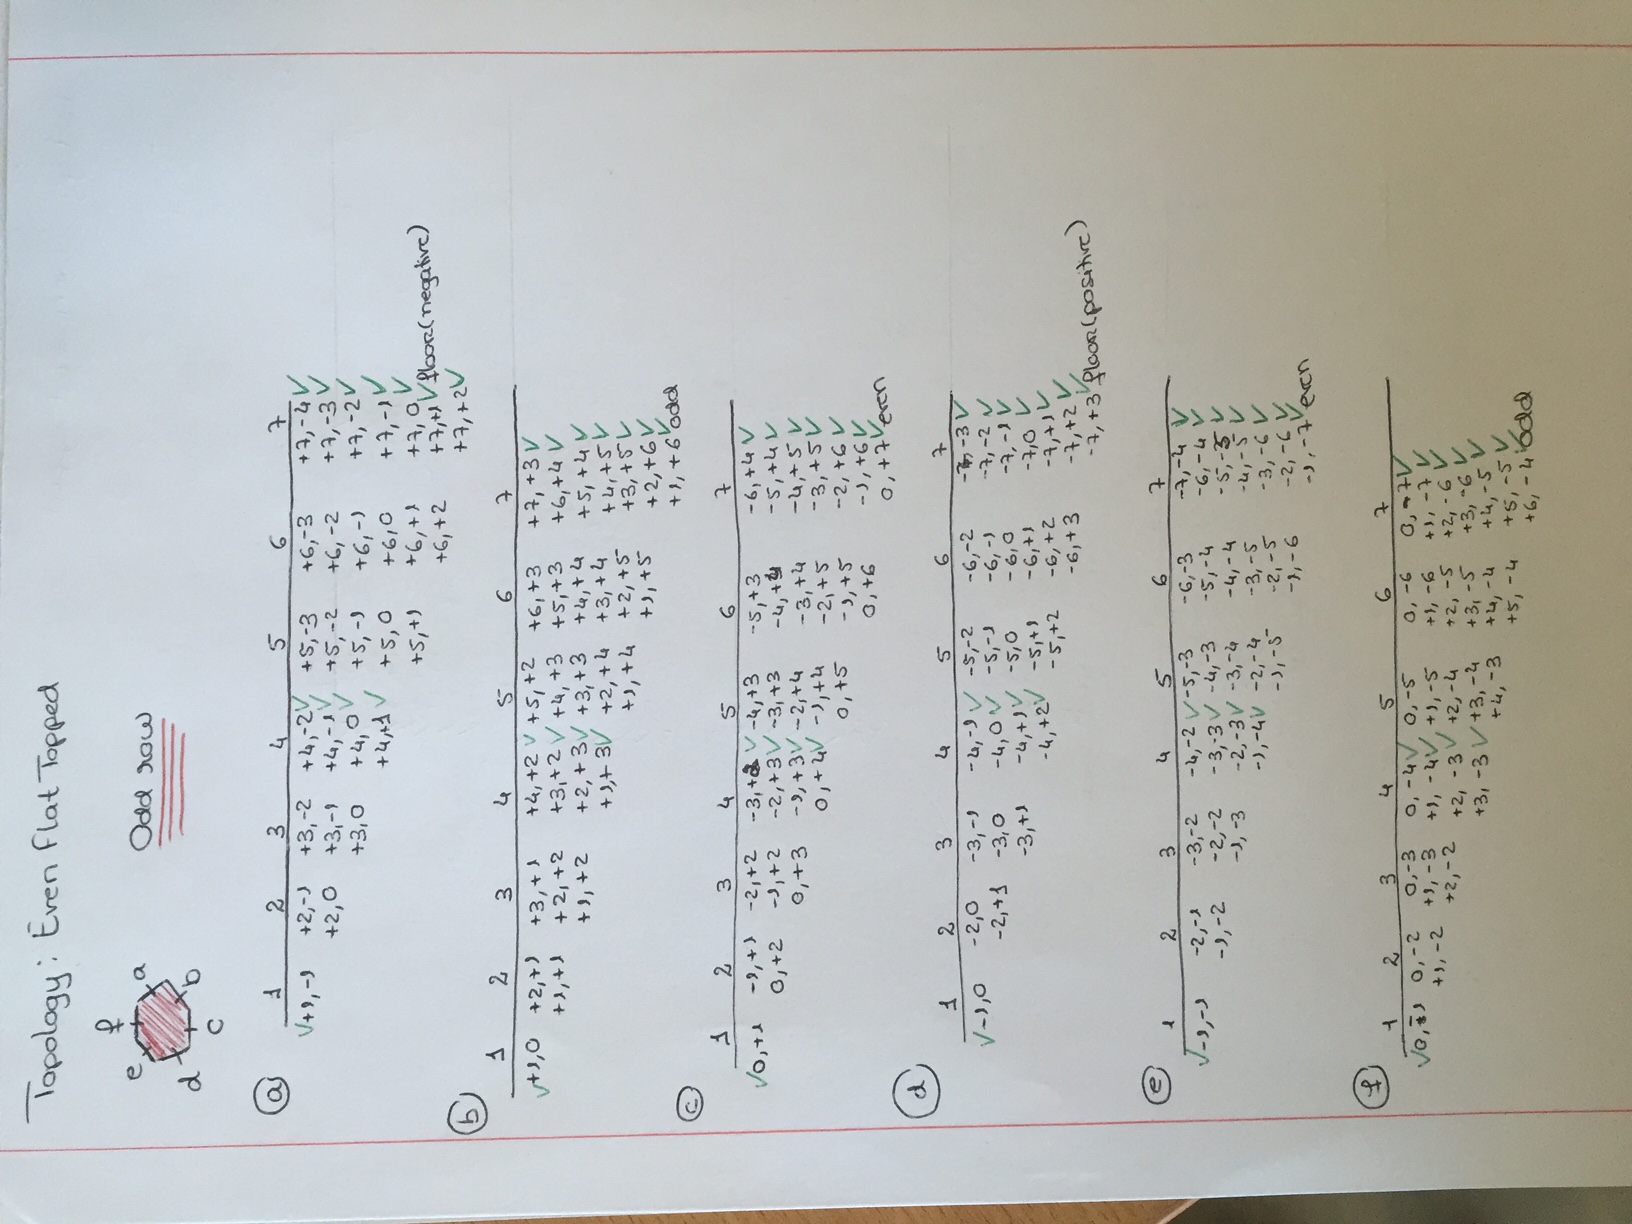 Topology: Even Flat Topped
e f a
d c b
Odd row
a
1 2 3 4 5 6 7
✓+1,-1 +2,-1 +3,-2 +4,-2✓ +5,-3 +6,-3 +7,-4✓
+2,0 +3,-1 +4,-1✓ +5,-2 +6,-2 +7,-3✓
+3,0 +4,0✓ +5,-1 +6,-1 +7,-2✓
+4,+1✓ +5,0 +6,0 +7,-1✓
+5,+1 +6,+1 +7,0✓
+6,+2 +7,+1✓ floor(negative)
+7,+2✓
b
1 2 3 4 5 6 7
✓+1,0 +2,+1 +3,+1 +4,+2✓ +5,+2 +6,+3 +7,+3✓
+1,+1 +2,+2 +3,+2✓ +4,+3 +5,+3 +6,+4✓
+1,+2 +2,+3✓ +3,+3 +4,+4 +5,+4✓
+1,+3✓ +2,+4 +3,+4 +4,+5✓
+1,+4 +2,+5 +3,+5✓
+1,+5 +2,+6✓
+1,+6 odd
c
1 2 3 4 5 6 7
✓0,+1 -1,+1 -2,+2 -3,+2✓ -4,+3 -5,+3 -6,+4✓
0,+2 -1,+2 -2,+3✓ -3,+3 -4,+4 -5,+4✓
0,+3 -1,+3✓ -2,+4 -3,+4 -4,+5✓
0,+4✓ -1,+4 -2,+5 -3,+5✓
0,+5 -1,+5 -2,+6✓
0,+6 -1,+6✓
0,+7✓ even
d
1 2 3 4 5 6 7
✓-1,0 -2,0 -3,-1 -4,-1✓ -5,-2 -6,-2 -7,-3✓
-2,+1 -3,0 -4,0✓ -5,-1 -6,-1 -7,-2✓
-3,+1 -4,+1✓ -5,0 -6,0 -7,-1✓
-4,+2✓ -5,+1 -6,+1 -7,0✓
-5,+2 -6,+2 -7,+1✓
-6,+3 -7,+2✓
-7,+3✓ floor(positive)
e
1 2 3 4 5 6 7
✓-1,-1 -2,-1 -3,-2 -4,-2✓ -5,-3 -6,-3 -7,-4✓
-1,-2 -2,-2 -3,-3✓ -4,-3 -5,-4 -6,-4✓
-1,-3 -2,-3✓ -3,-4 -4,-4 -5,-5✓
-1,-4✓ -2,-4 -3,-5 -4,-5✓
-1,-5 -2,-5 -3,-6✓
-1,-6 -2,-6✓
-1,-7✓ even
f
1 2 3 4 5 6 7
✓0,-1 0,-2 0,-3 0,-4✓ 0,-5 0,-6 0,-7✓
+1,-2 +1,-3 +1,-4✓ +1,-5 +1,-6 +1,-7✓
+2,-2 +2,-3✓ +2,-4 +2,-5 +2,-6✓
+3,-3✓ +3,-4 +3,-5 +3,-6✓
+4,-3 +4,-4 +4,-5✓
+5,-4 +5,-5✓
+6,-4✓ odd